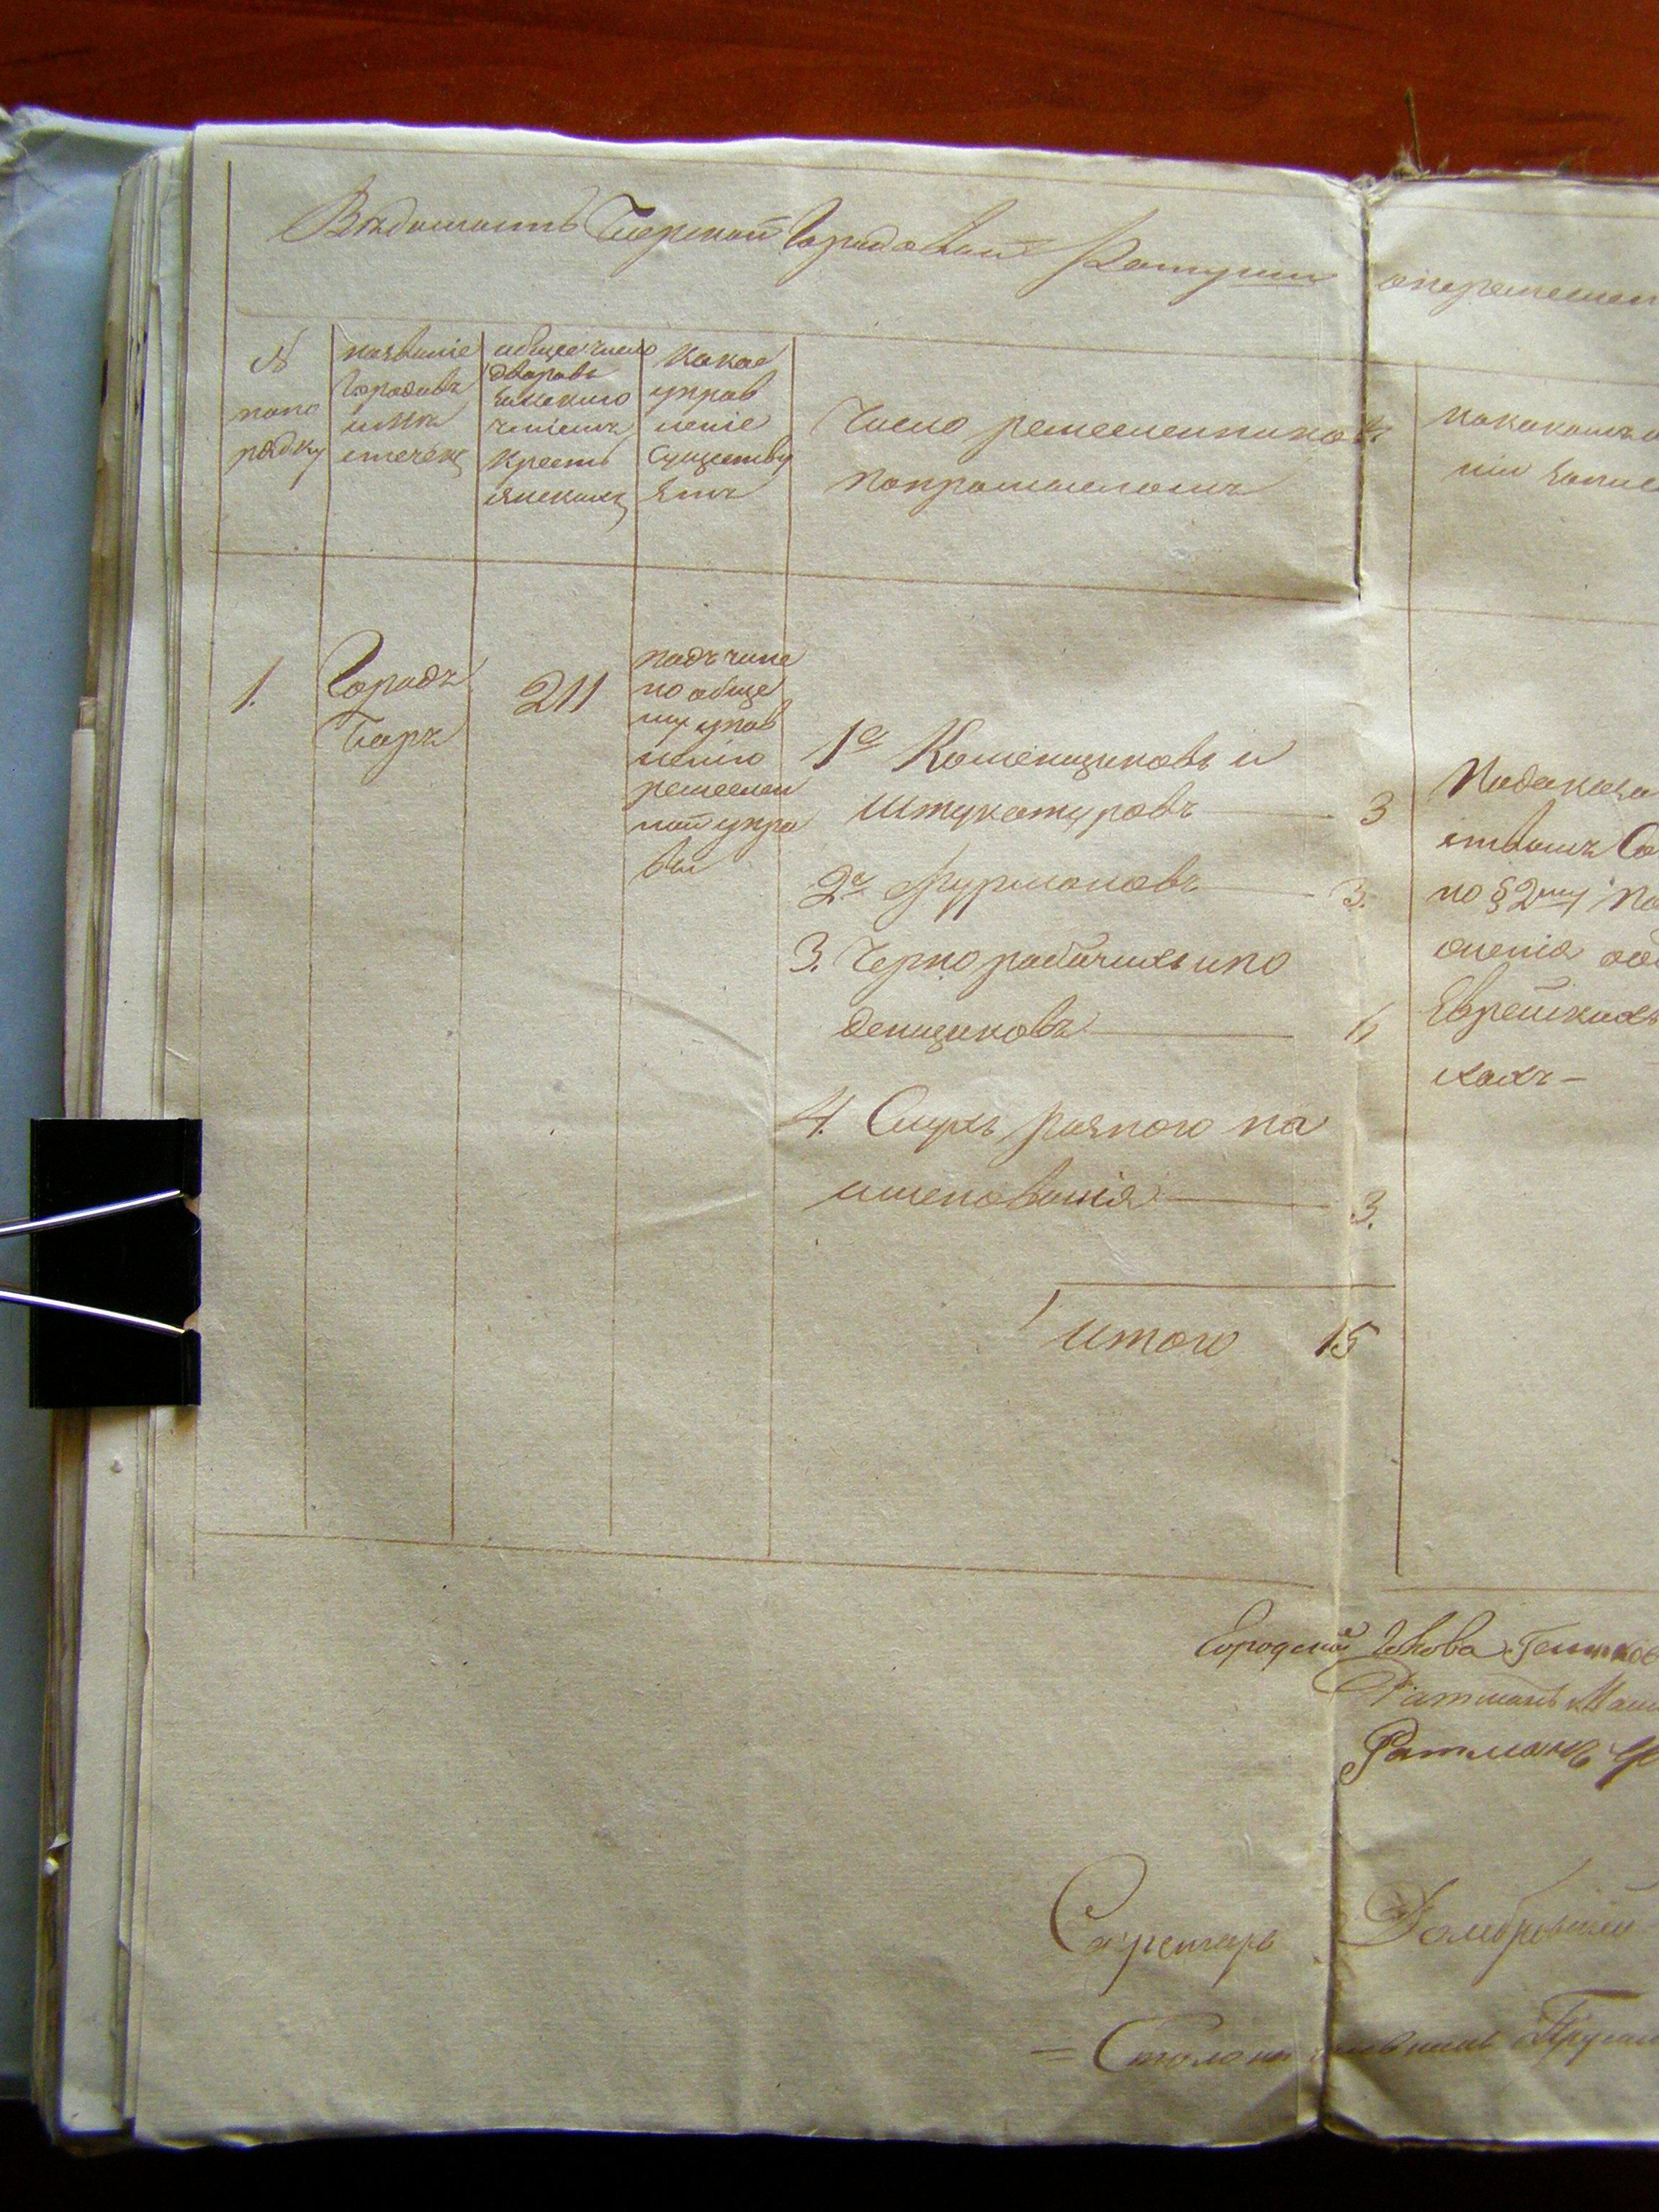 Вѣдомость Барской Городовой Ратуши
оремеслен
№
попо
рядку
названіе
Городовъ
или
мѣстечекъ
общее число
дворовъ
заисклю
ченіемъ
крестъ
янскихъ
Какое
управ
леніе
существу
етъ
Число ремесленниковъ
попромысламъ
покакому
1.
Городъ
Баръ
211
подъчине
но обще
му управ
ленію
ремеслен
ной упра
вы
1е Каменщиковъ и
Штукатуровъ 3
2е Фурмановъ 3.
3. Чернорабочихъ ипо
денщиковъ 6
4. Слугъ разного на
именованія 3.
Итого 15
по § 2му По
оженія объ
Еврейскихъ
Городской Голова
Ратманъ
Ратманъ
Секретарь Домбровскій
Столоначальникъ